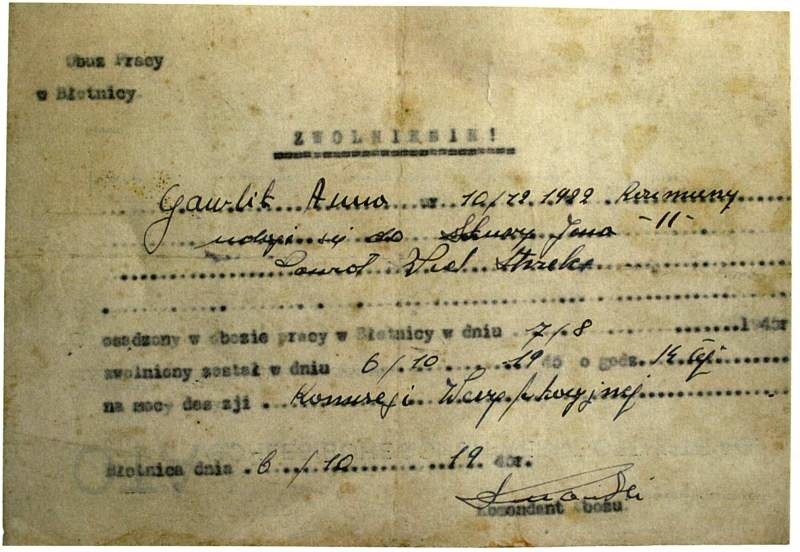 Obuz Pracy
w Błotnicy
ZWOLNIENIE!
Gawlik Anna ur 10/12 1922
udaje się do Jana -II-
Powiat Wiel Strzelce
osadzony w obozie pracy w Błotnicy w dniu 7/8 1945r
zwolniony został w dniu 6/10 1945 o godz. 14 tej
na mocy decyzji Komisji Weryfikacyjnej
Błotnica dnia 6/10 1945r.
Komendant obozu